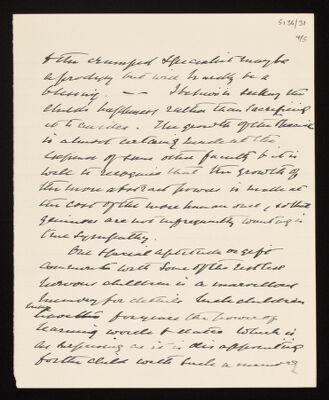 5136/31
4/5
& the cramped Specialist may be
a prodigy but will hardly be a
blessing. -- I believe in seeking the
childs happiness rather than sacrificing
it to . The growth of the Brain
is almost certainly made at the
expense of some other faculty & it is
well to recognise that the growth of
the more abstract powers is made at
the cost of the more human ones, so that
geniuses are not infrequently wanting in
true Sympathy.
One special aptitude or gift
common with some of the
nervous children is a marvellous
memory for details. Such children
may for years the power of
learning words & dates which is
as as it is disappointing
for the child with such a memory